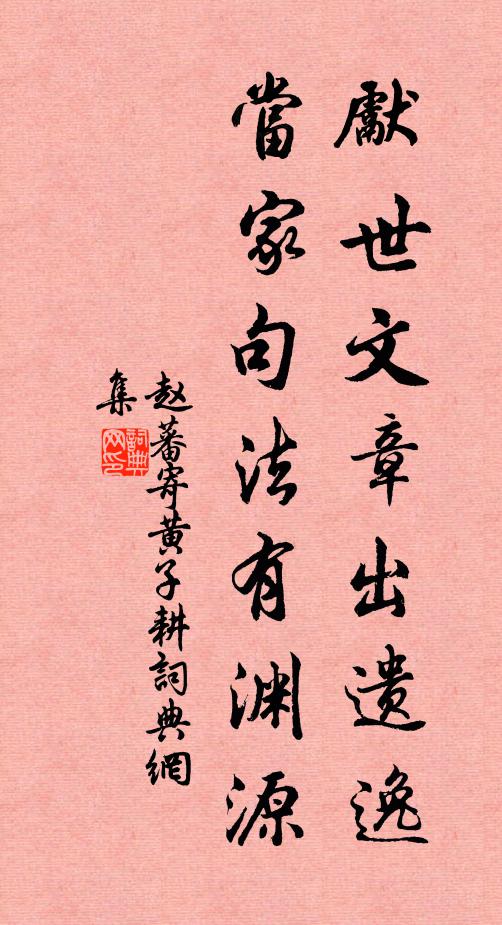 獻世文章出遺逸
當家句法有渊源
赵蕃寄黄子耕詞典網
集
詞典
网印